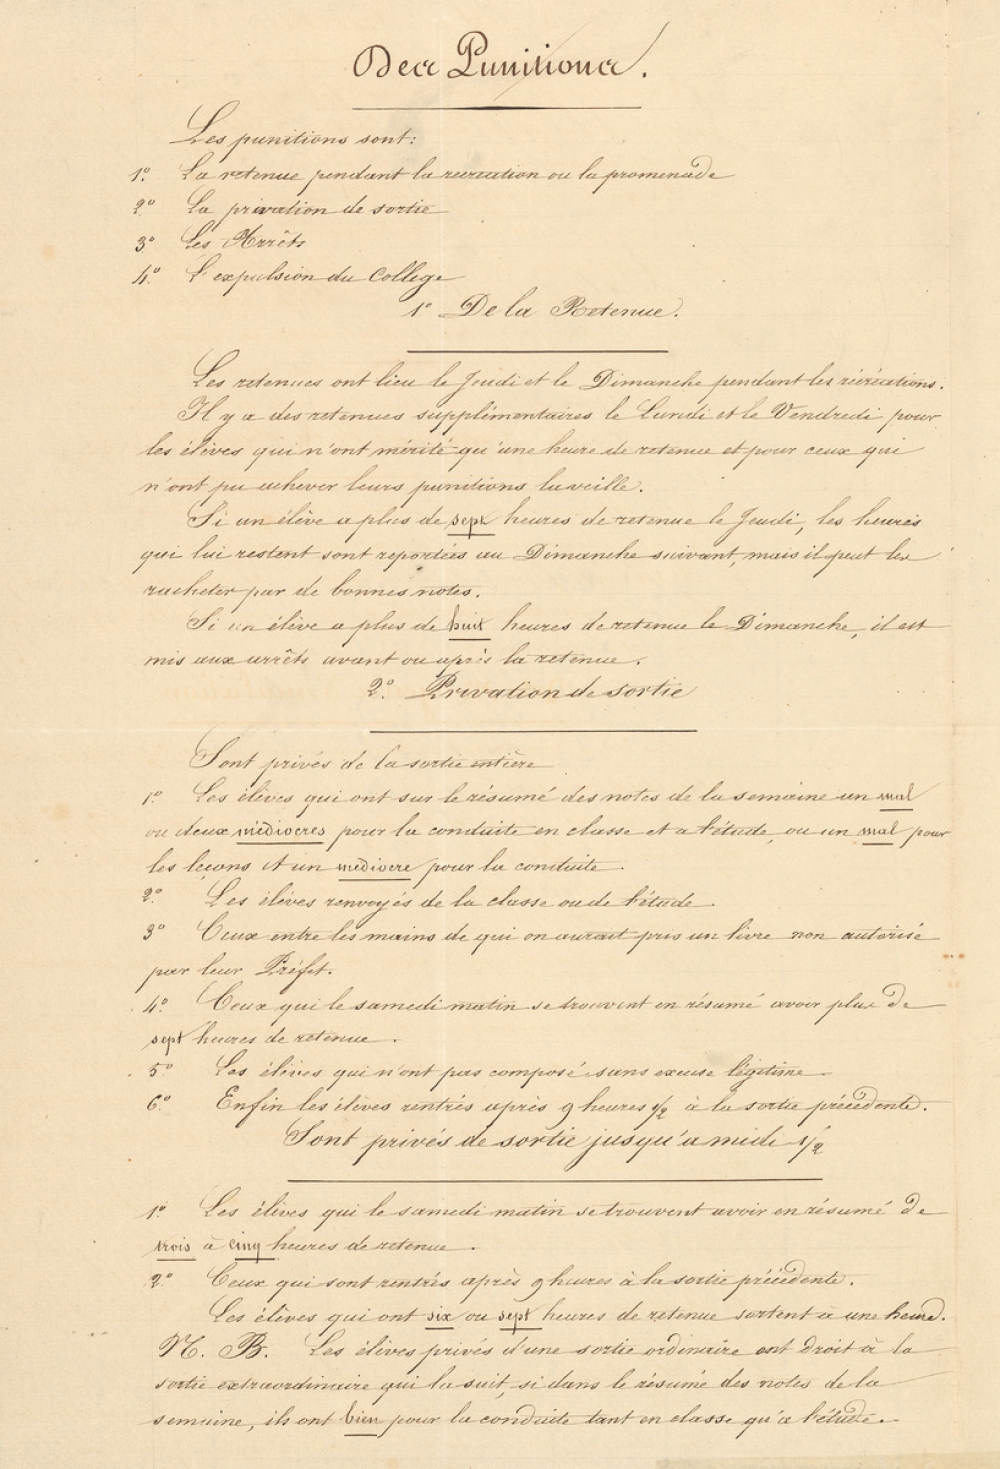 Des Punitions.
Les punitions sont:
1º. La retenue pendant la recreation ou la promenade
2º La privation de sortie
3º Les Arrêts
4º. L'expulsion du College
1º De la Retenue.
Les retenues ont lieu le Jeudi et le Dimanche pendant les récréations.
Il y a des retenues supplémentaires le Lundi et le Vendredi pour
les élèves qui n'ont mérité qu'une heure de retenue et pour ceux qui
n'ont pu achever leurs punitions la veille.
Si un élève a plus de sept heures de retenue le Jeudi, les heures
qui lui restent sont reportées au Dimanche suivant, mais il peut les
racheter par de bonnes notes.
Si un élève a plus de huit heures de retenue le Dimanche, il est
mis aux arrêts avant ou après la retenue.
2º. Privation de sortie
Sont privés de la sortie entière
1º Les élèves qui ont sur le résumé des notes de la semaine un mal
ou deux médiocres pour la conduite en classe et a l'étude, ou un mal pour
les leçons et un mediocre pour la conduite.
2º. Les élèves renvoyés de la classe ou de l'étude.
3º Ceux entre les mains de qui on aurait pris un livre non autorisé
par leur Préfet.
4º. Ceux qui le samedi matin se trouvent en résumé avoir plus de
sept heures de retenue.
5º Les élèves qui n'ont pas composé sans excuse légitime.
6º. Enfin les élèves rentrés après 9 heures 1/2 à la sortie précédente.
Sont privés de sortie jusqu'a midi 1/2
1º Les élèves qui le samedi matin se trouvent avoir en résumé de
trois à cinq heures de retenue.
2º. Ceux qui sont rentrés après 9 heures à la sortie précédente.
Les élèves qui ont six ou sept heures de retenue sortent à une heure.
N. B. Les élèves privés d'une sortie ordinaire ont droit à la
sortie extraordinaire qui la suit, si dans le résumé des notes de la
semaine, ils ont bien pour la conduite tant en classe qu'a l'étude.